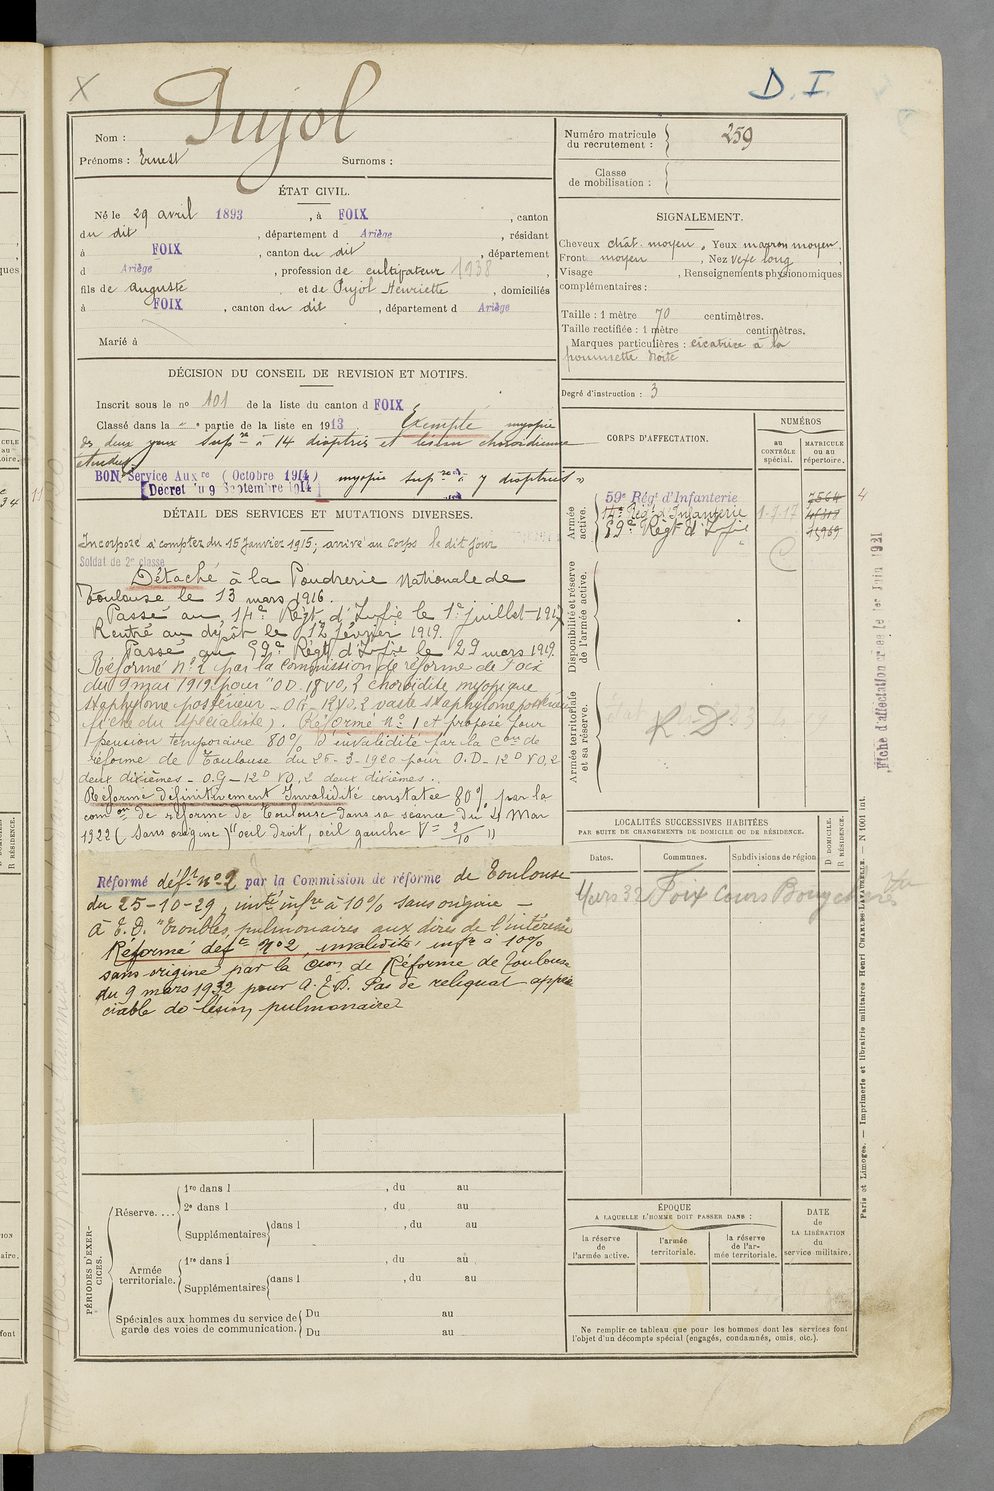 X
D. I.
Nom : Pujol
Prénoms : Ernest Surnoms :
Numéro matricule du recrutement : 259
Classe de mobilisation :
ÉTAT CIVIL.
Né le 29 avril 1893, à FOIX, canton
du dit, département d Ariège, résidant
à FOIX, canton du dit, département
d Ariège, profession de cultivateur 1938,
fils de auguste et de Pujol Henriette, domiciliés
à FOIX, canton du dit, département d Ariège
Marié à
SIGNALEMENT.
Cheveux chât. moyen, Yeux marron moyen,
Front moyen, Nez vexe long
Visage , Renseignements physionomiques
complémentaires :
Taille : 1 mètre 70 centimètres.
Taille rectifiée : 1 mètre centimètres.
Marques particulières : cicatrice à la
pommette droite
Degré d'instruction : 3
DÉCISION DU CONSEIL DE REVISION ET MOTIFS.
Inscrit sous le nº 101 de la liste du canton d FOIX
Classé dans la " ᵉ partie de la liste en 1913 Exempté myopie
des deux yeux supʳᵉ à 14 dioptries et lésion choroïdienne
étendue
BON Service Auxʳᵉ (Octobre 1914) myopie supʳᵉ à 7 dioptries »
Decret du 9 Septembre 1914
DÉTAIL DES SERVICES ET MUTATIONS DIVERSES.
Incorporé à compter du 15 Janvier 1915; arrivé au Corps le dit jour
Soldat de 2ᵉ classe
Détaché à la Poudrerie Nationale de
Toulouse le 13 mars 1916.
Passé au 14ᵉ Régt d'Infie le 1ᵉʳ juillet 1917
Rentré au dépôt le 12 février 1919.
Passé au 59ᵉ Régt d'Infie le 29 mars 1919.
Réformé Nº 2 par la Commission de réforme de Foix
du 9 mai 1919 pour "OD. 18 VO,2 choroïdite myopique
staphylome postérieur - OG - 18 VO,2 vaste staphylome postérieur
fiche du spécialiste). Réformé Nº 1 et proposé pour
pension temporaire 80% d'invalidité par la Cᵒⁿ de
réforme de Toulouse du 25-3-1920 pour O.D - 12ᴰ VO,2
deux dixièmes - O.G - 12ᴰ VO,2 deux dixièmes.
Réformé définitivement Invalidité constatée 80% par la
comᵒⁿ de réforme de Toulouse dans sa séance du 4 Mai
1922 (Sans origine) "oeil droit, oeil gauche V = 2/10 "
Réformé défᵗ nº 2 par la Commission de réforme de Toulouse
du 25-10-29, invᵗᵉ infʳᵉ à 10% sans origine -
à E.D. "Troubles pulmonaires aux dires de l'intéressé
Réformé défᵗ Nº 2 invalidité infʳᵉ à 10%
sans origine par la Cᵒⁿ de Réforme de Toulouse
du 9 mars 1932 pour A.E.D. Pas de reliquat appré-
ciable de lésion pulmonaire
CORPS D'AFFECTATION.
NUMÉROS
au CONTRÔLE spécial.
MATRICULE ou au répertoire.
Armée active.
59ᵉ Régᵗ d'Infanterie 7564
14ᵉ Régᵗ d'Infanterie 1-7-17
59ᵉ Régt d'Infie 15969
Disponibilité et réserve de l'armée active.
Armée territoriale et sa réserve.
R. D
4
Fiche d'affectation créée le 1er Juin 1921
LOCALITÉS SUCCESSIVES HABITÉES
PAR SUITE DE CHANGEMENTS DE DOMICILE OU DE RÉSIDENCE.
Dates. Communes. Subdivisions de région. D DOMICILE. R RÉSIDENCE.
Mars 32 Foix Cours
PÉRIODES D'EXERCICES.
Réserve....
1ʳᵉ dans l , du au
2ᵉ dans l , du au
Supplémentaires dans l , du au
Armée territoriale.
1ʳᵉ dans l , du au
Supplémentaires dans l , du au
Spéciales aux hommes du service de garde des voies de communication.
Du au
Du au
ÉPOQUE
A LAQUELLE L'HOMME DOIT PASSER DANS :
la réserve de l'armée active.
l'armée territoriale.
la réserve de l'armée territoriale.
DATE de LA LIBÉRATION du service militaire.
Ne remplir ce tableau que pour les hommes dont les services font
l'objet d'un décompte spécial (engagés, condamnés, omis, etc.).
Paris et Limoges. — Imprimerie et librairie militaires Henri CHARLES-LAVAUZELLE. — N 1001 int.